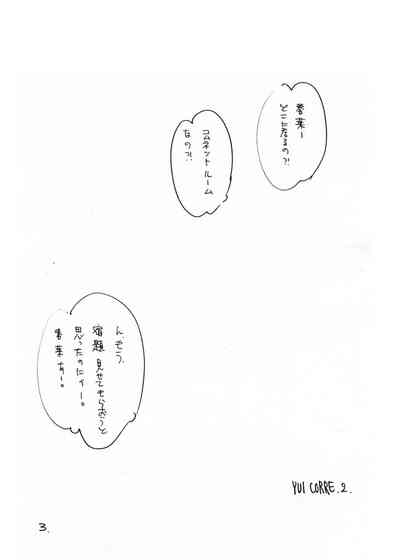 春菜ー
どこに居るの?!
コムネットルーム
なの?!
ん、もう、
宿題見せてもらおうと
思ったのにィー。
春菜めー。
YUI CORRE.2.
3.